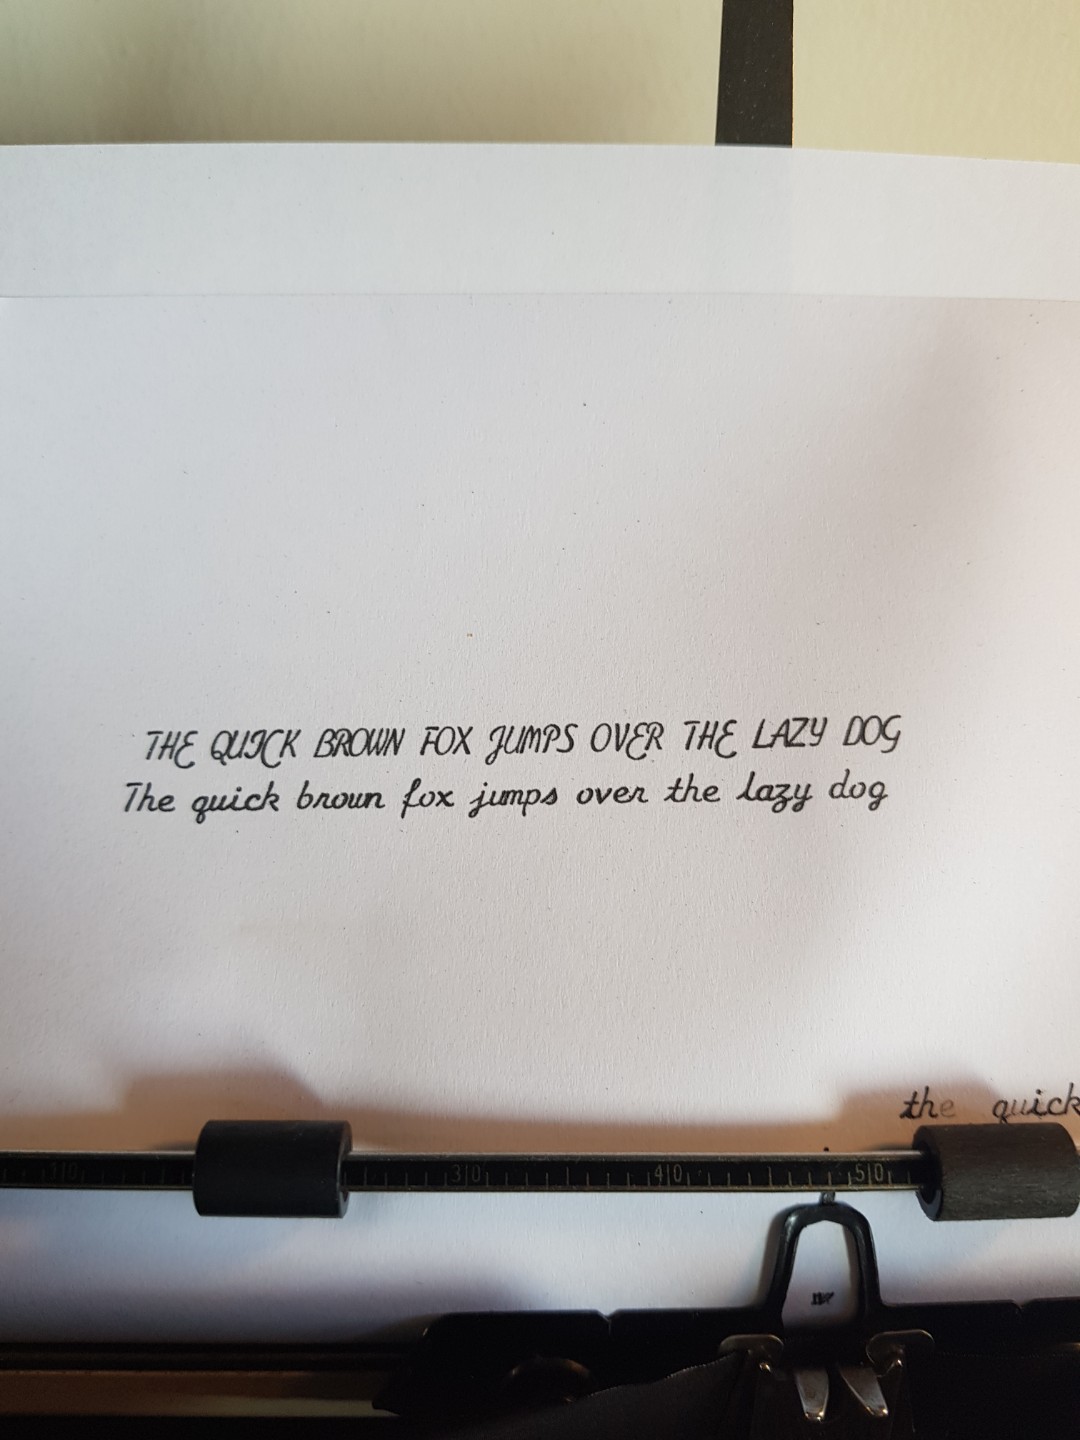 THE QUICK BROWN FOX JUMPS OVER THE LAZY DOG
The quick brown fox jumps over the lazy dog
the quick
10 30 40 50